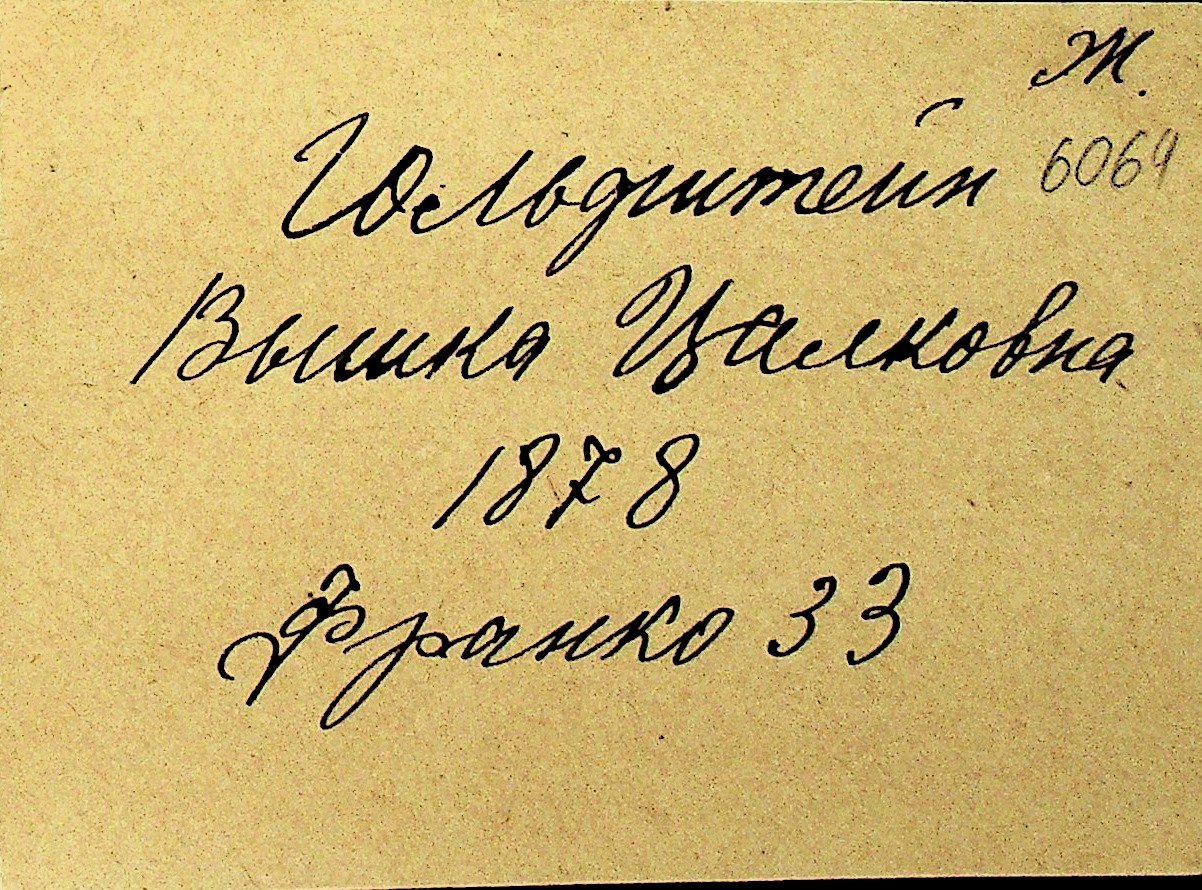 Ж.
Гольдштейн 6064
Вышка Цалковна
1878
Франко 33